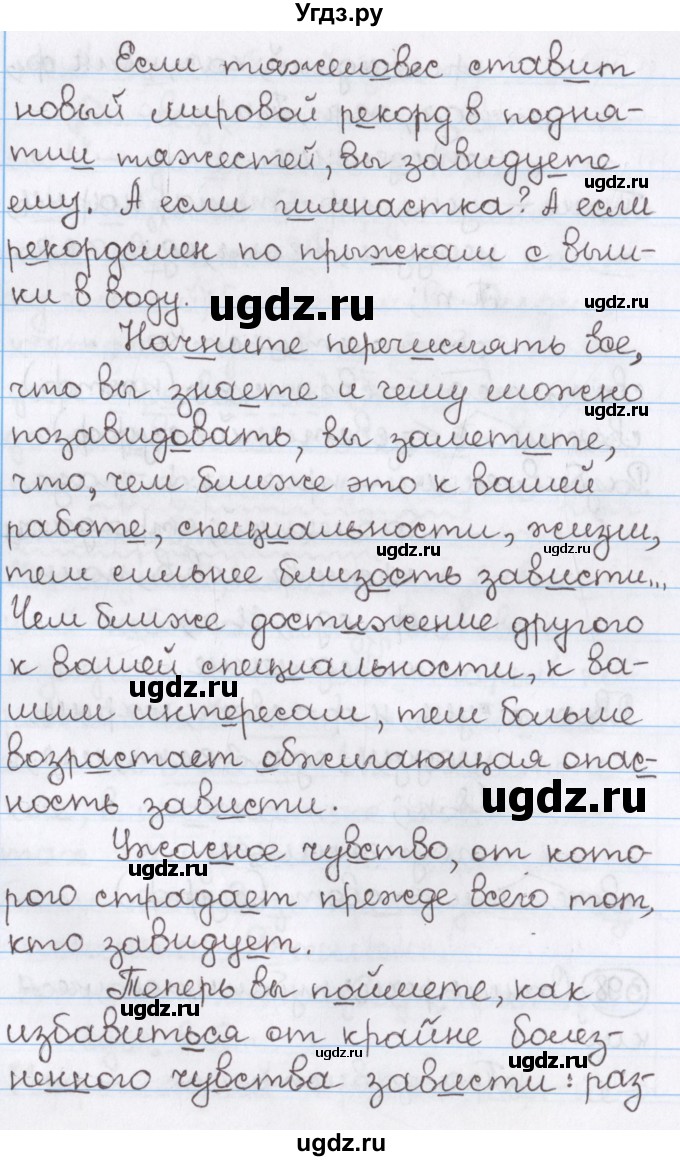 Угдз.ру
Если тяжеловес ставит
новый мировой рекорд в подня-
тии тяжестей, вы завидуете
ugdz.ru
ему. А если гимнастка? А если
ugdz.ru
рекордсмен по прыжкам с выш-
ки в воду.
ugdz.ru
ugdz.ru
Начните перечислять все,
что вы знаете и чему можно
ugdz.ru
позавидовать, вы заметите,
что, чем ближе это к вашей
работе, специальности, жизни,
ugdz.ru
ugdz.ru
тем сильнее близость зависти...
Чем ближе достижение другого
к вашей специальности, к ва-
ugdz.ru
шим интересам, тем больше
возрастает обжигающая опас-
ность зависти.
ugdz.ru
Ужасное чувство, от кото-
ugdz.ru
рого страдает прежде всего тот,
кто завидует.
Теперь вы поймете, как
ugdz.ru
избавиться от крайне болез-
ugdz.ru
ugdz.ru
ненного чувства зависти: раз-
ugdz.ru